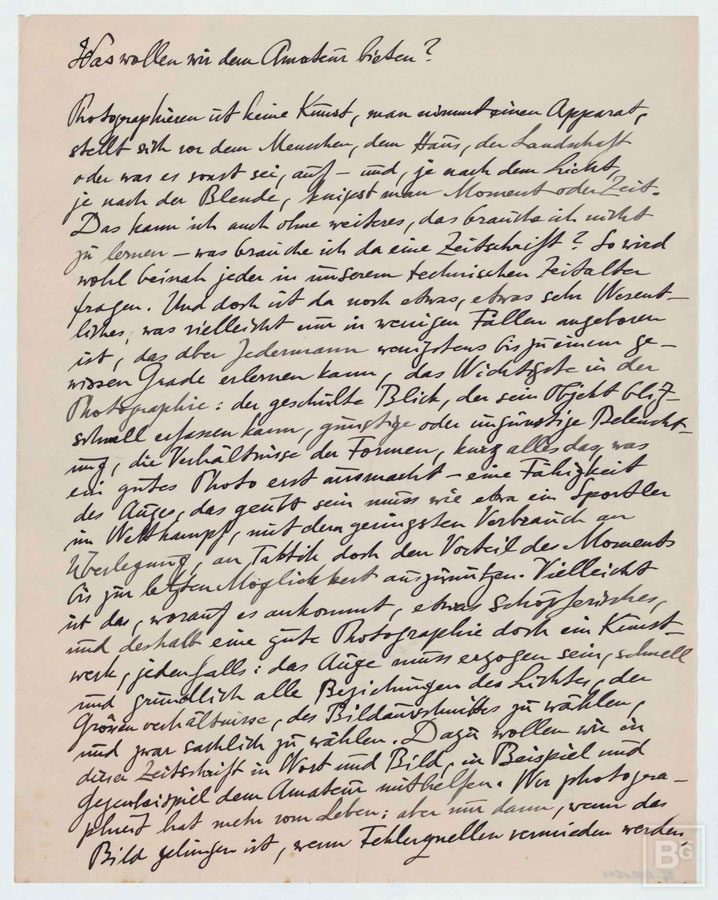 Was wollen wir dem Amateur bieten?
Photographieren ist keine Kunst, man nimmt einen Apparat,
stellt sich vor dem Menschen, dem Haus, der Landschaft
oder was es sonst sei, auf – und, je nach dem Licht,
je nach der Blende, knipst man Moment oder Zeit.
Das kann ich auch ohne weiteres, das brauche ich nicht
zu lernen – was brauche ich da eine Zeitschrift? So wird
wohl beinah jeder in unserem technischen Zeitalter
fragen. Und doch ist da noch etwas, etwas sehr Wesent-
liches, was vielleicht nur in wenigen Fällen angeboren
ist, das aber Jedermann wenigstens bis zu einem ge-
wissen Grade erlernen kann, das Wichtigste in der
Photographie: der geschulte Blick, der sein Objekt blitz-
schnell erfassen kann, günstige oder ungünstige Beleucht-
ung, die Verhältnisse der Formen, kurz alles das, was
ein gutes Photo erst ausmacht – eine Fähigkeit
des Auges, das geübt sein muss wie etwa ein Sportler
im Wettkampf, mit dem geringsten Verbrauch an
Überlegung, an Taktik doch den Vorteil des Moments
bis zur letzten Möglichkeit auszunutzen. Vielleicht
ist das, worauf es ankommt, etwas schöpferisches,
und deshalb eine gute Photographie doch ein Kunst-
werk, jedenfalls: das Auge muss erzogen sein, schnell
und gründlich alle Beziehungen des Lichtes, der
Grössenverhältnisse, des Bildausschnittes zu wählen,
und zwar sachlich zu wählen. Dazu wollen wir in
dieser Zeitschrift in Wort und Bild, in Beispiel und
Gegenbeispiel dem Amateur mithelfen. Wer photogra-
phiert hat mehr vom Leben: aber nur dann, wenn das
Bild gelungen ist, wenn Fehlerquellen vermieden werden.
BG